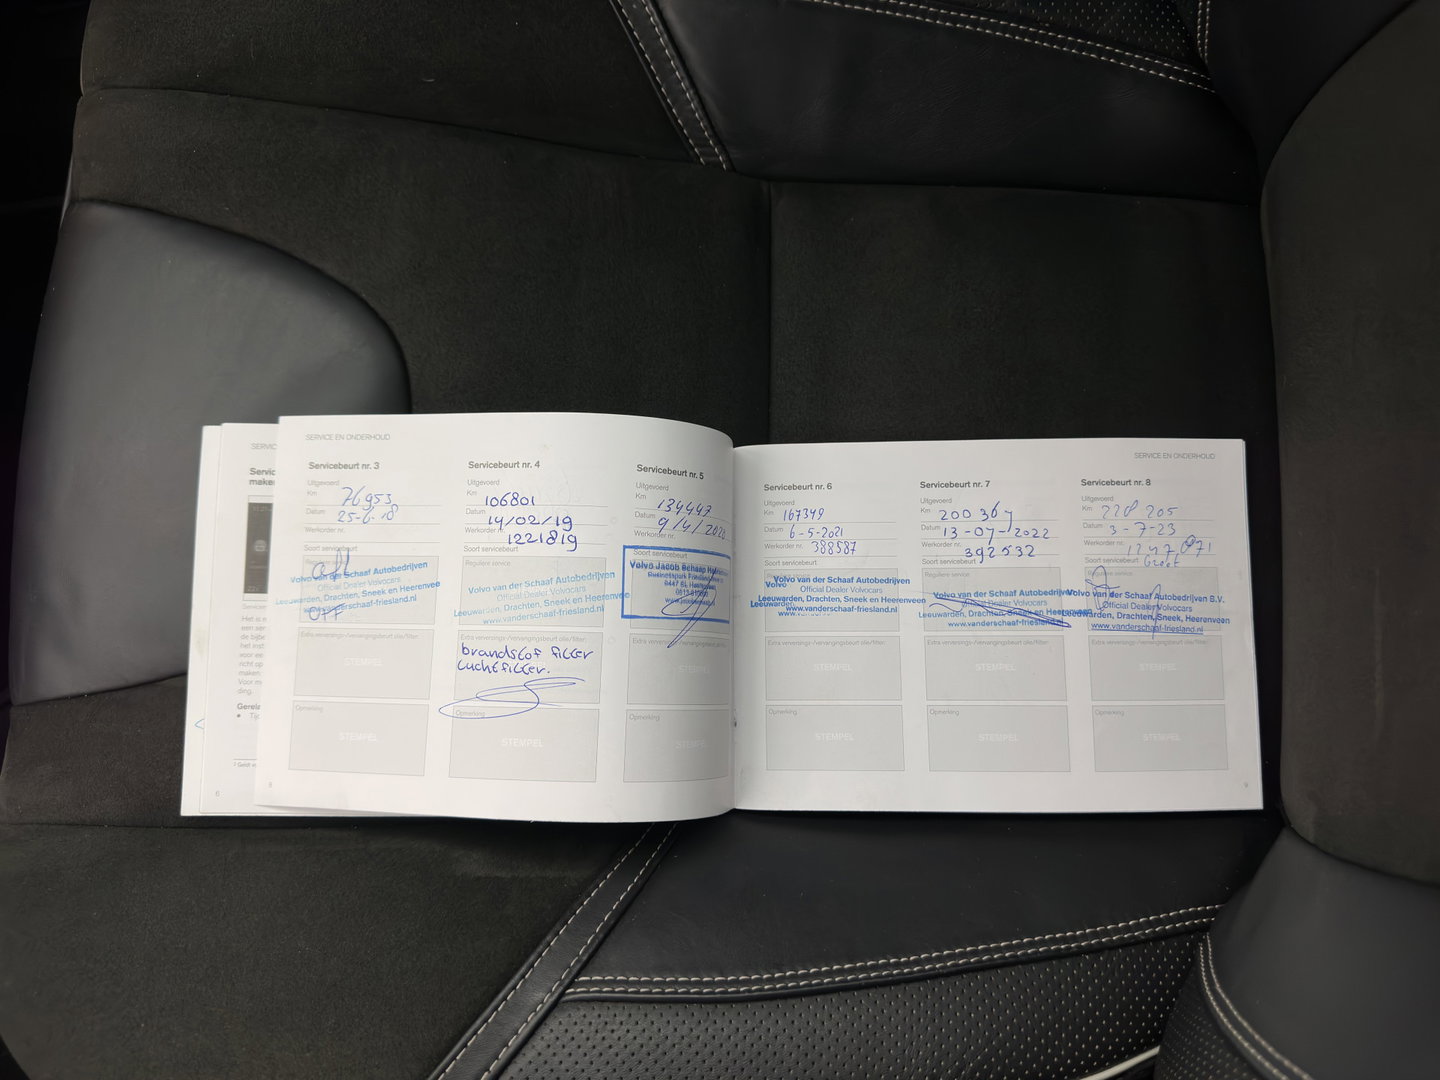 SERVICE EN ONDERHOUD
Servicebeurt nr. 3
Uitgevoerd
Km 76953
Datum 25-6-18
Werkorder nr.
Soort servicebeurt
Volvo van der Schaaf Autobedrijven
Official Dealer Volvocars
Leeuwarden, Drachten, Sneek en Heerenveen
www.vanderschaaf-friesland.nl
Extra verversings-/vervangingsbeurt olie/filter:
STEMPEL
Opmerking
STEMPEL
8
Servicebeurt nr. 4
Uitgevoerd
Km 106801
Datum 14/02/19
Werkorder nr. 1221819
Soort servicebeurt
Reguliere service
Volvo van der Schaaf Autobedrijven
Official Dealer Volvocars
Leeuwarden, Drachten, Sneek en Heerenveen
www.vanderschaaf-friesland.nl
Extra verversings-/vervangingsbeurt olie/filter:
brandstof filter
luchtfilter.
Opmerking
STEMPEL
Servicebeurt nr. 5
Uitgevoerd
Km 134447
Datum 9/4/2020
Werkorder nr.
Soort servicebeurt
Volvo Jacob Schaap
Extra verversings-/vervangingsbeurt
STEMPEL
Opmerking
STEMPEL
SERVICE EN ONDERHOUD
Servicebeurt nr. 6
Uitgevoerd
Km 167349
Datum 6-5-2021
Werkorder nr. 388587
Soort servicebeurt
Volvo van der Schaaf Autobedrijven
Volvo
Official Dealer Volvocars
Leeuwarden, Drachten, Sneek en Heerenveen
Leeuwarden,
www.vanderschaaf-friesland.nl
Extra verversings-/vervangingsbeurt olie/filter:
STEMPEL
Opmerking
STEMPEL
Servicebeurt nr. 7
Uitgevoerd
Km 200367
Datum 13-07-2022
Werkorder nr. 392532
Soort servicebeurt
Reguliere service
Volvo van der Schaaf Autobedrijven
Official Dealer Volvocars
Leeuwarden, Drachten, Sneek en Heerenveen
www.vanderschaaf-friesland.nl
Extra verversings-/vervangingsbeurt olie/filter:
STEMPEL
Opmerking
STEMPEL
Servicebeurt nr. 8
Uitgevoerd
Km 228205
Datum 3-7-23
Werkorder nr.
Soort servicebeurt Groot
Reguliere service
Volvo van der Schaaf Autobedrijven B.V.
Official Dealer Volvocars
Leeuwarden, Drachten, Sneek, Heerenveen
www.vanderschaaf-friesland.nl
Extra verversings-/vervangingsbeurt olie/filter:
STEMPEL
Opmerking
STEMPEL
9